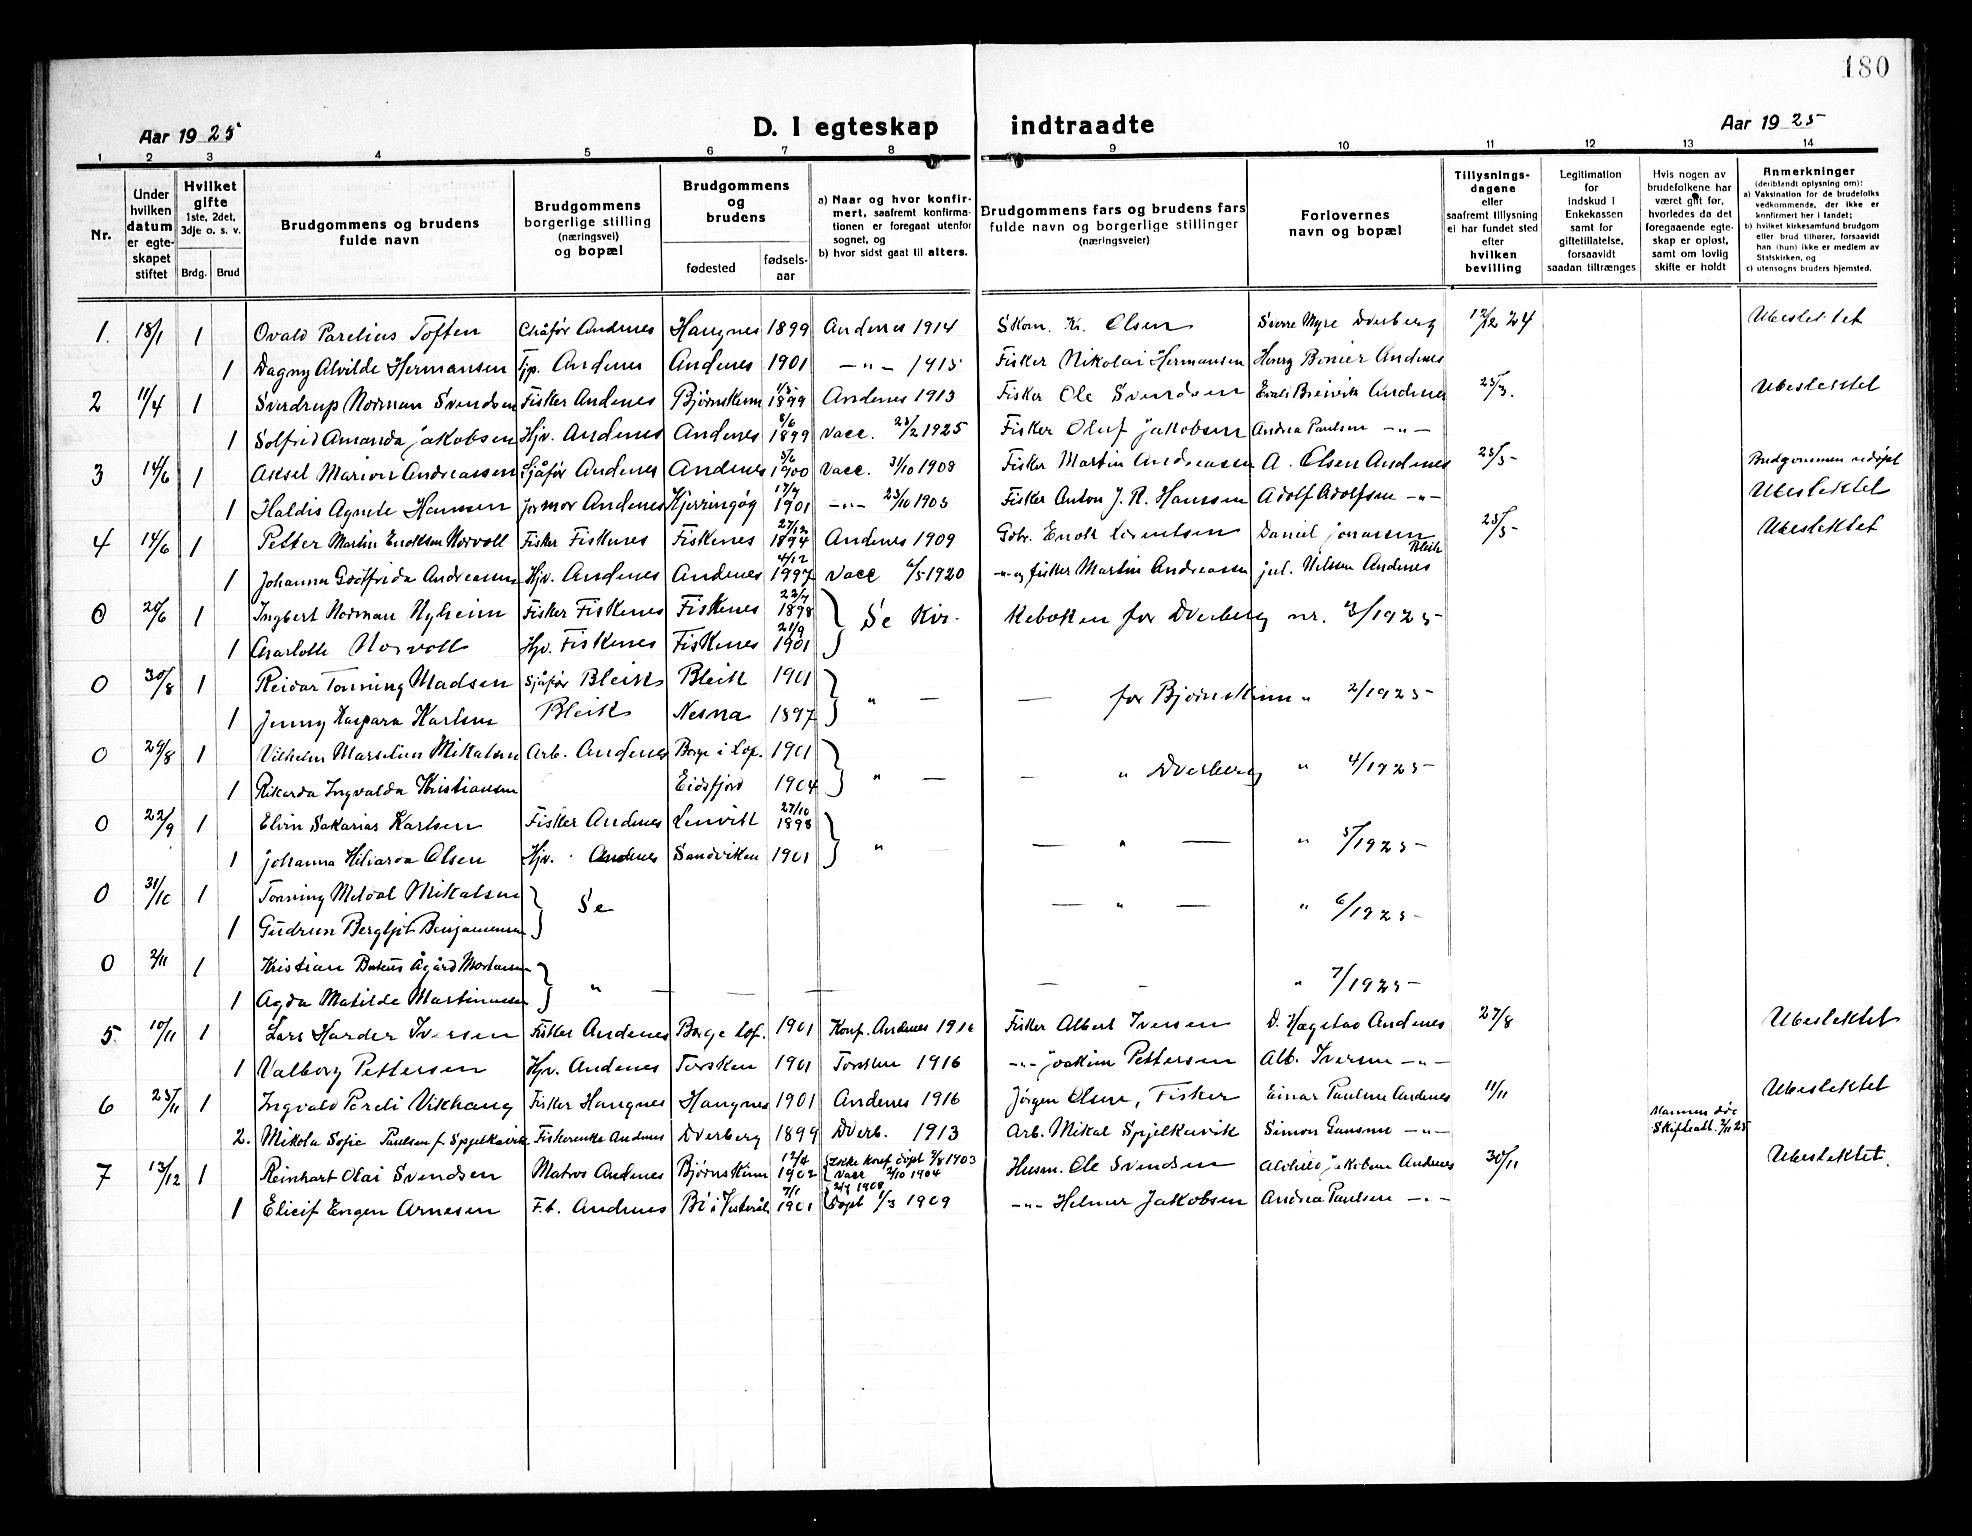 180
Aar 1925 D. I egteskap indtraadte Aar 1925
1 2 3 4 5 6 7 8 9 10 11 12 13 14
Nr.
Under hvilken datum er egteskapet stiftet
Hvilket gifte 1ste, 2det, 3dje o. s. v.
Brdg. Brud
Brudgommens og brudens fulde navn
Brudgommens borgerlige stilling (næringsvei) og bopæl
Brudgommens og brudens
fødested fødselsaar
a) Naar og hvor konfirmert, saafremt konfirmationen er foregaat utenfor sognet, og
b) hvor sidst gaat til alters.
Brudgommens fars og brudens fars fulde navn og borgerlige stillinger (næringsveier)
Forlovernes navn og bopæl
Tillysningsdagene eller saafremt tillysning ei har fundet sted efter hvilken bevilling
Legitimation for indskud i Enkekassen samt for giftetillatelse, forsaavidt saadan tiltrænges
Hvis nogen av brudefolkene har været gift før, hvorledes da det foregaaende egteskap er opløst, samt om lovlig skifte er holdt
Anmerkninger (deriblandt oplysning om): a) Vaksination for de brudefolks vedkommende, der ikke er konfirmert her i landet; b) hvilket kirkesamfund brudgom eller brud tilhører, forsaavidt han (hun) ikke er medlem av Statskirken, og c) utensogns bruders hjemsted.
1. 18/1 1 Ovald Parelius Toften Chåfør Andenes Haugnes 1899 Andenes 1914 Skom. K. Olsen Sverre Myre Dverberg 12/12 24 Ubeslektet
1 Dagny Alvilde Hermansen Tjp. Andenes Andenes 1901 — " — 1915 Fisker Nikolai Hermansen Henry Benier Andenes
2 11/4 1 Sverdrup Norman Svendsen Fisker Andenes Bjørnskinn 1899 Andenes 1913 Fisker Ole Svendsen Evald Breivik Andenes 25/3. Ubeslektet
1 Solfrid Amanda Jakobsen Hjv. Andenes Andenes 8/6 1899 Vacc. 23/2 1925 Fisker Oluf Jakobsen Andrea Paulsen — " —
3 14/6 1 Aksel Marion Andreassen Sjåfør Andenes Andenes 5/6 1900 Vacc. 31/10 1908 Fisker Martin Andreassen A. Olsen Andenes 25/5 Brudgommen udøpt
1 Haldis Agnete Hansen Jormor Andenes Kjerringøy 17/7 1901 — " — 23/10 1905 Fisker Anton J. R. Hanssen Adolf Adolfsen — " — Ubeslektet
4 14/6 1 Petter Martin Enoksen Norvoll Fisker Fiskenes Fiskenes 27/12 1894 Andenes 1909 Gbr. Enok Lorentsen Daniel Jonassen Bleik 25/5 Ubeslektet
1 Johanna Godtfrida Andreassen Hjv. Andenes Andenes 4/12 1997 Vacc 6/5 1920 — " — og fisker Martin Andreassen Jul. Nilsen Andenes
0 20/6 1 Ingbert Norman Nyheim Fisker Fiskenes Fiskenes 23/7 1898 Se Kir- keboken for Dverberg nr. 3/1925
1 Charlotte Norvoll Hjv. Fiskenes Fiskenes 21/9 1901
0 30/8 1 Reidar Tonning Madsen Sjåfør Bleik Bleik 1901 " — — for Bjørnskinn " 2/1925
1 Jenny Kaspara Karlsen Bleik Nesna 1897
0 29/8 1 Vilhelm Marselius Mikalsen Arb. Andenes Borge i Lof. 1901 " — — " Dverberg " 4/1925
1 Rikarda Ingvalda Kristiansen Eidsfjord 1904
0 22/9 1 Elvin Sakarias Karlsen Fisker Andenes Lenvik 27/10 1898 " — — " — " 5/1925
1 Johanna Hiliarda Olsen Hjv. Andenes Sandviken 1901
0 31/10 1 Tonning Meldal Mikalsen Se — " — " 6/1925
1 Gudrun Bergljot Benjaminsen
0 2/11 1 Kristian Ågård Mortensen " — — — — — " 7/1925
1 Agda Matilde Martinussen
5 10/11 1 Lars Harder Iversen Fisker Andenes Borge Lof. 1901 Konf. Andenes 1916 Fisker Albert Iversen D. Hægstad Andenes 27/8 Ubeslektet
1 Valborg Pettersen Hjv. Andenes Torsken 1901 Torsken 1916 — " — Joakim Pettersen Alb. Iversen — " —
6 25/11 1 Ingvald Pareli Vikhaug Fisker Haugnes Haugnes 1901 Andenes 1916 Jørgen Olsen, Fisker Einar Paulsen Andenes 11/11 Ubeslektet
2. Mikola Sofie Paulsen f. Spjelkavik Fiskerenke Andenes Dverberg 1899 Dverb. 1913 Arb. Mikal Spjelkavik Simon — " — Mannen død Skifteatt. 7/11 25
7 13/12 1 Reinhart Olai Svendsen Matros Andenes Bjørnskinn 12/4 1902 Ikke Konf døpt 2/8 1903 Vacc 2/10 1904 Husm. Ole Svendsen Alvhild Jakobsen Andenes 30/11 Ubeslektet.
1 Elieif Engen Arnesen F.t. Andenes Bø i Vesterål 7/1 1901 1908 Døpt 1/3 1909 — " — Helmer Jakobsen Andrea Paulsen — " —